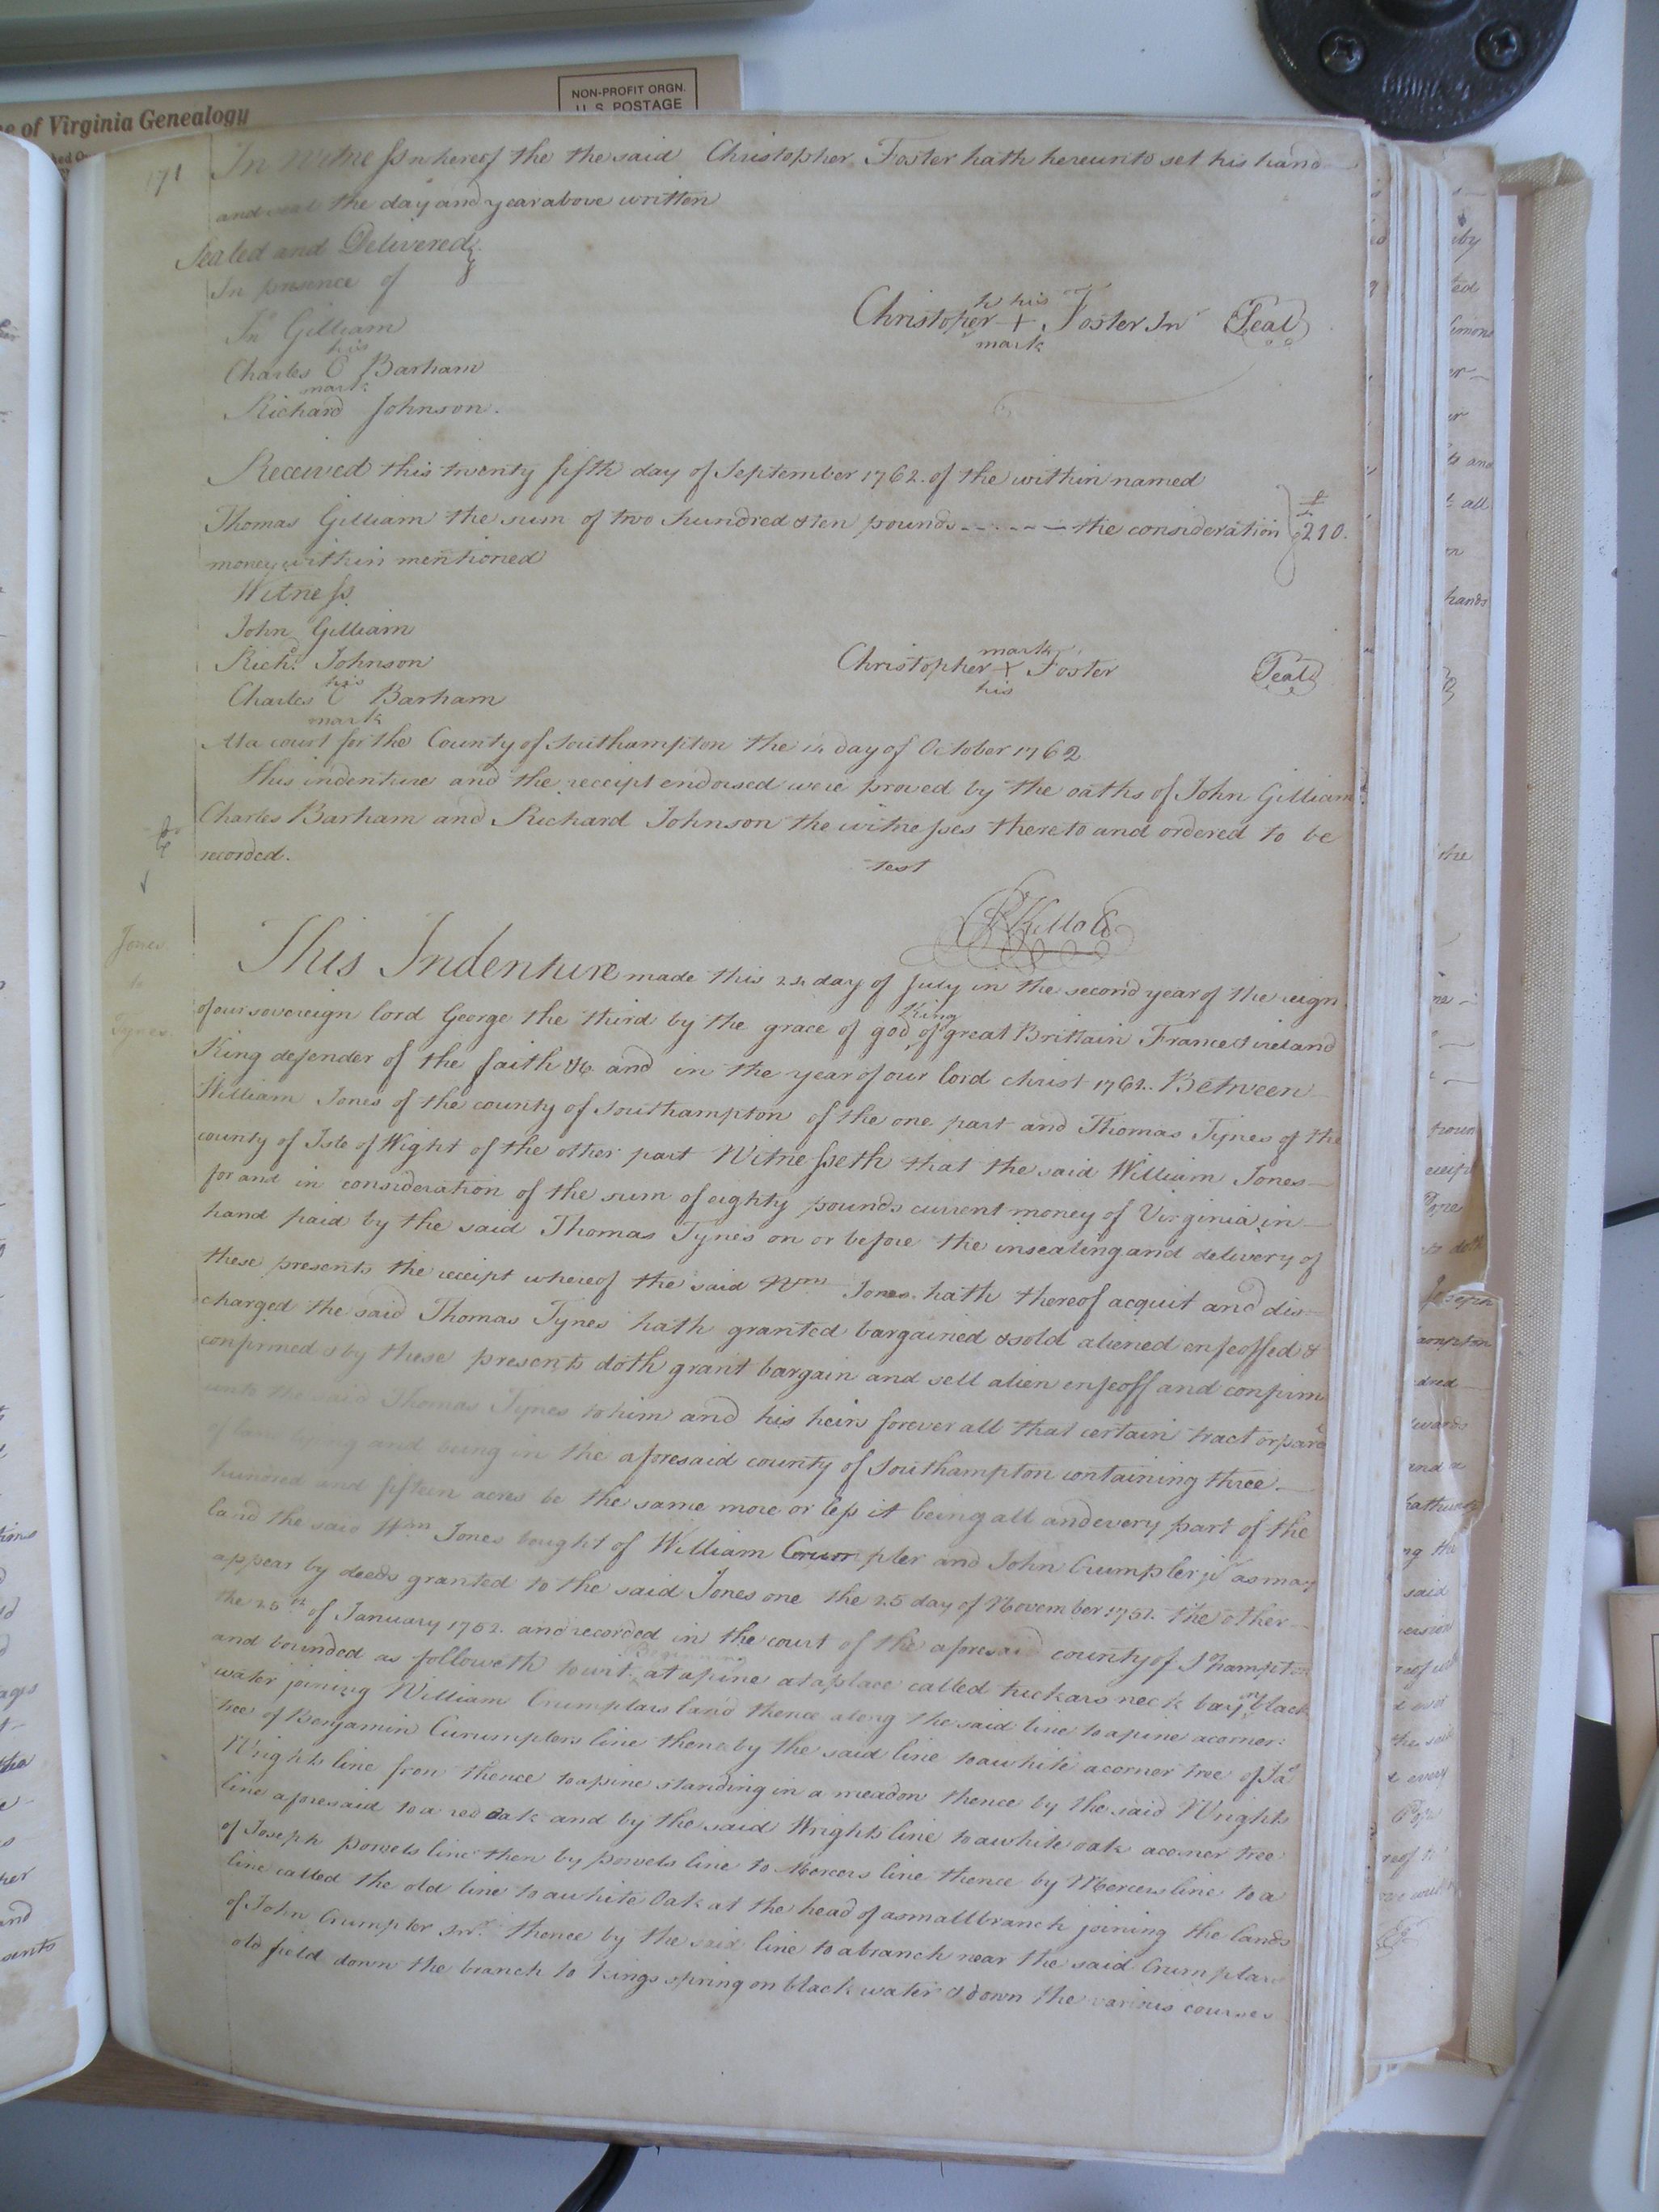 of Virginia Genealogy
NON-PROFIT ORGN.
U. S. POSTAGE
171
In Witness whereof the the said Christopher Foster hath hereunto set his hand
and seal the day and year above written
Sealed and Delivered
In presence of
Jno Gilliam
his
Charles C Barham
mark
Richard Johnson.
his
Christopher + Foster Jnr Seal
mark
Received this twenty fifth day of September 1762. of the within named
Thomas Gilliam the sum of two hundred & ten pounds - - - - the consideration £210.
money within mentioned
Witness
John Gilliam
Richd. Johnson
his
Charles C Barham
mark
mark
Christopher + Foster Seal
his
At a court for the County of Southampton the 14 day of October 1762
This indenture and the receipt endorsed were proved by the oaths of John Gilliam
Charles Barham and Richard Johnson the witnesses thereto and ordered to be
recorded.
test
Jones
to
Tynes
This Indenture made this 24 day of July in the second year of the reign
of our sovereign lord George the third by the grace of god King of great Brittain France & ireland
King defender of the faith &c. and in the year of our lord christ 1762. Between
William Jones of the county of Southampton of the one part and Thomas Tynes of the
county of Isle of Wight of the other part Witnesseth that the said William Jones
for and in consideration of the sum of eighty pounds current money of Virginia in
hand paid by the said Thomas Tynes on or before the insealing and delivery of
these presents the receipt whereof the said Wm Jones hath thereof acquit and dis-
charged the said Thomas Tynes hath granted bargained & sold aliened enfeoffed &
confirmed & by these presents doth grant bargain and sell alien enfeoff and confirm
unto the said Thomas Tynes to him and his heirs forever all that certain tract or
of land lying and being in the aforesaid county of Southampton containing three
hundred and fifteen acres be the same more or less it being all and every part of the
land the said Wm Jones bought of William Crumpler and John Crumpler jr as may
appear by deeds granted to the said Jones one the 25 day of November 1751. the other
the 25th of January 1752. and recorded in the court of the aforesaid county of Shampton
and bounded as followeth towit. Beginning at a pine at a place called tuckars neck bay on black
water joining William Crumplars land thence along the said line to a pine a corner
tree of Benjamin Curumplers line thence by the said line to a white a corner tree of Jas
Wrights line from thence to a pine standing in a meadow thence by the said Wrights
line aforesaid to a red oak and by the said Wrights line to a white oak a corner tree
of Joseph powels line then by powels line to Mercers line thence by Mercers line to a
line called the old line to a white Oak at the head of a small branch joining the lands
of John Crumpler Snr. thence by the said line to a branch near the said Crumplars
old field down the branch to Kings spring on black water & down the various courses